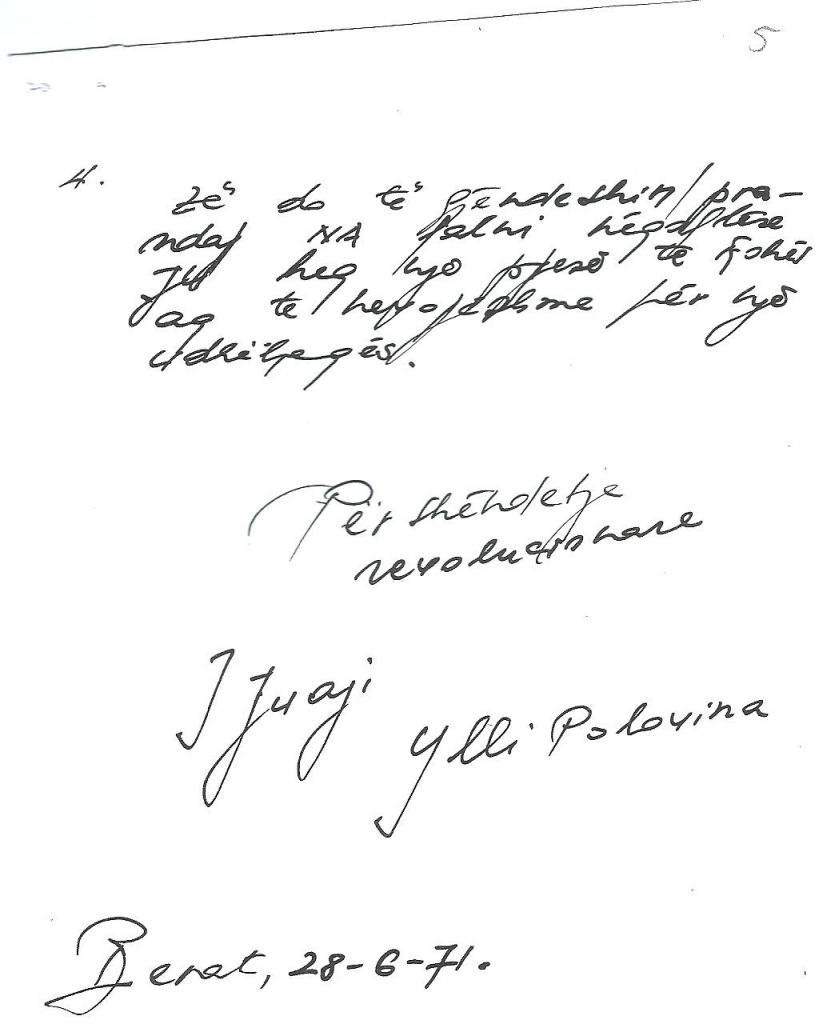 5
4. zë do të gjëndeshin, pra-
ndaj NA falni nëqoftëse
Ju heq një pjesë të kohës
aq të nevojëshme për një
udhëheqës.
Përshëndetje
revolucionare
I Juaji
Ylli Polovina
Berat, 28-6-71.